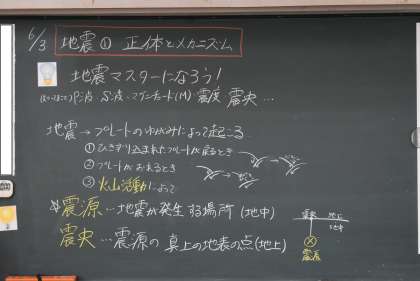 6/3 地震① 正体とメカニズム
地震マスターになろう!
P波・S波・マグニチュード(M)・震度 震央…
地震→プレートのゆがみによって起こる
①ひきずり込まれたプレートが戻るとき
②プレートがおれるとき
③火山活動によって
震源…地震が発生する場所(地中)
震央…震源の真上の地表の点(地上)
震央 地上
地中
震源